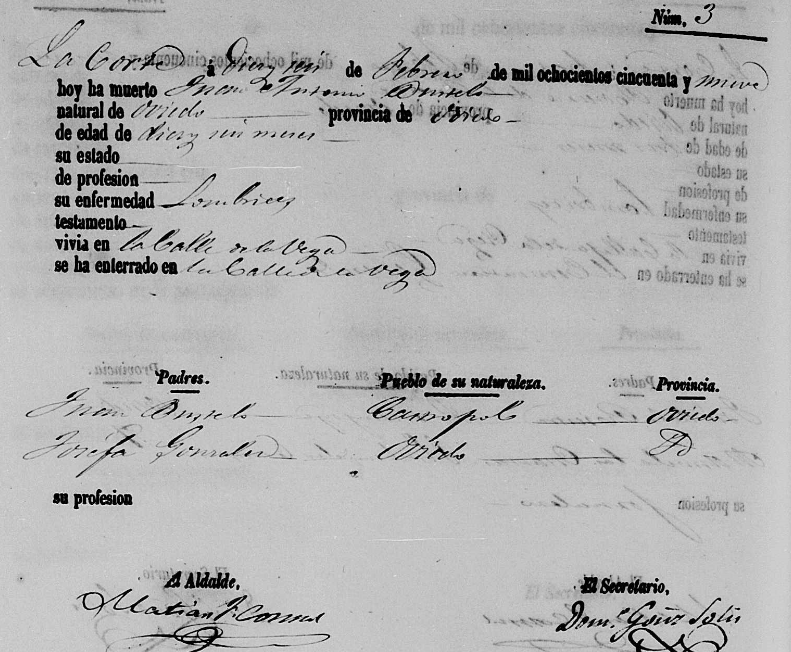 Núm. 3
La Corte á diez seis de Febrero de mil ochocientos cincuenta y nueve
hoy ha muerto Juan Antonio
natural de Oviedo provincia de Oviedo
de edad de diez seis meses
su estado
de profesion
su enfermedad Lombrices
testamento
vivia en la Calle de la Vega
se ha enterrado en la Calle de la Vega
Padres. Pueblo de su naturaleza. Provincia.
Juan Castropol Oviedo
Josefa Gonzalez Oviedo Id
su profesion
El Aldalde, El Secretario,
Matias Dom.º Gonz Solis